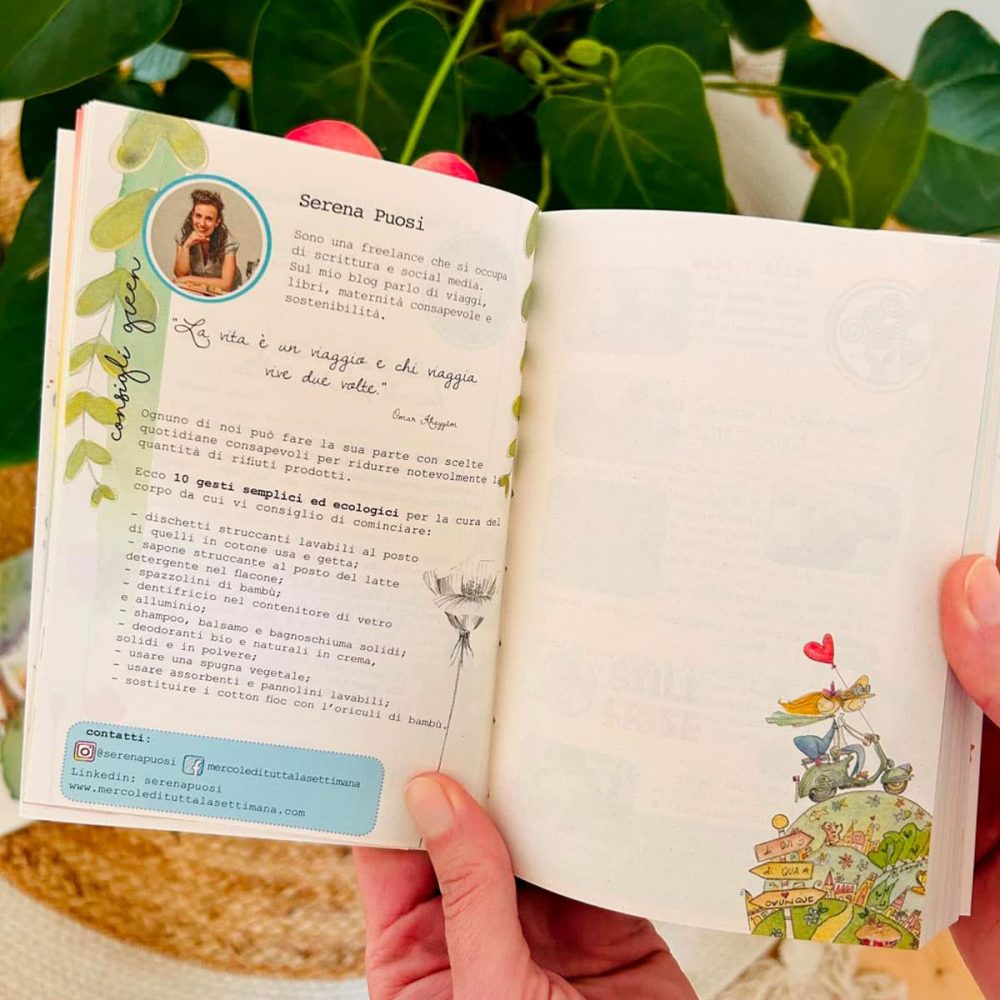 consigli green
Serena Puosi
Sono una freelance che si occupa
di scrittura e social media.
Sul mio blog parlo di viaggi,
libri, maternità consapevole e
sostenibilità.
"La vita è un viaggio e chi viaggia
vive due volte."
Omar Khayyám
Ognuno di noi può fare la sua parte con scelte
quotidiane consapevoli per ridurre notevolmente la
quantità di rifiuti prodotti.
Ecco 10 gesti semplici ed ecologici per la cura del
corpo da cui vi consiglio di cominciare:
- dischetti struccanti lavabili al posto
di quelli in cotone usa e getta;
- sapone struccante al posto del latte
detergente nel flacone;
- spazzolini di bambù;
- dentifricio nel contenitore di vetro
e alluminio;
- shampoo, balsamo e bagnoschiuma solidi;
- deodoranti bio e naturali in crema,
solidi e in polvere;
- usare una spugna vegetale;
- usare assorbenti e pannolini lavabili;
- sostituire i cotton fioc con l'oriculi di bambù.
contatti:
@serenapuosi mercoledituttalasettimana
Linkedin: serenapuosi
www.mercoledituttalasettimana.com
di QUI
di QUA
OVUNQUE